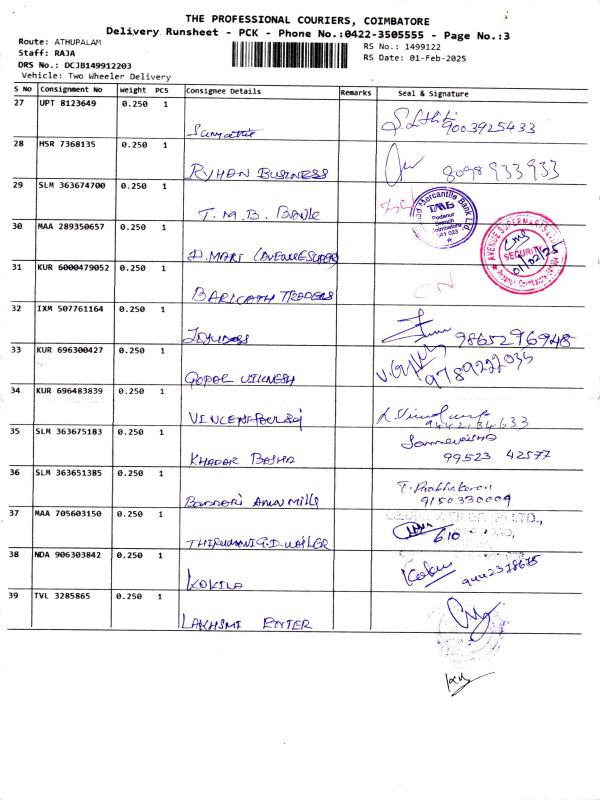 THE PROFESSIONAL COURIERS, COIMBATORE
Delivery Runsheet - PCK - Phone No.:0422-3505555 - Page No.:3
Route: ATHUPALAM
RS No.: 1499122
Staff: RAJA
RS Date: 01-Feb-2025
DRS No.: DCJB149912203
Vehicle: Two Wheeler Delivery
S No Consignment No Weight PCS Consignee Details Remarks Seal & Signature
27 UPT 8123649 0.250 1
9003925433
28 HSR 7368135 0.250 1
RYHAN BUSINESS 8098 933933
29 SLM 363674700 0.250 1
T.M.B. BANK
Mercantile Bank Ltd.
TMB
Podanur
Branch
Coimbatore
641 023
30 MAA 289350657 0.250 1
D.MART
AVENUE SUPERMARTS
SECURITY
01/02/25
31 KUR 6000479052 0.250 1
BARKATH TRADERS
32 IXM 507761164 0.250 1
9865276948
33 KUR 696300427 0.250 1
GOPAL VIKNESH 9789222034
34 KUR 696483839 0.250 1
35 SLM 363675183 0.250 1
KHADAR BASHA 99523 42577
36 SLM 363651385 0.250 1
T. Prabhakaran
9150330009
37 MAA 705603150 0.250 1
610
38 NDA 906303842 0.250 1
KOKILA
39 TVL 3285865 0.250 1
LAKHSMI ENTER